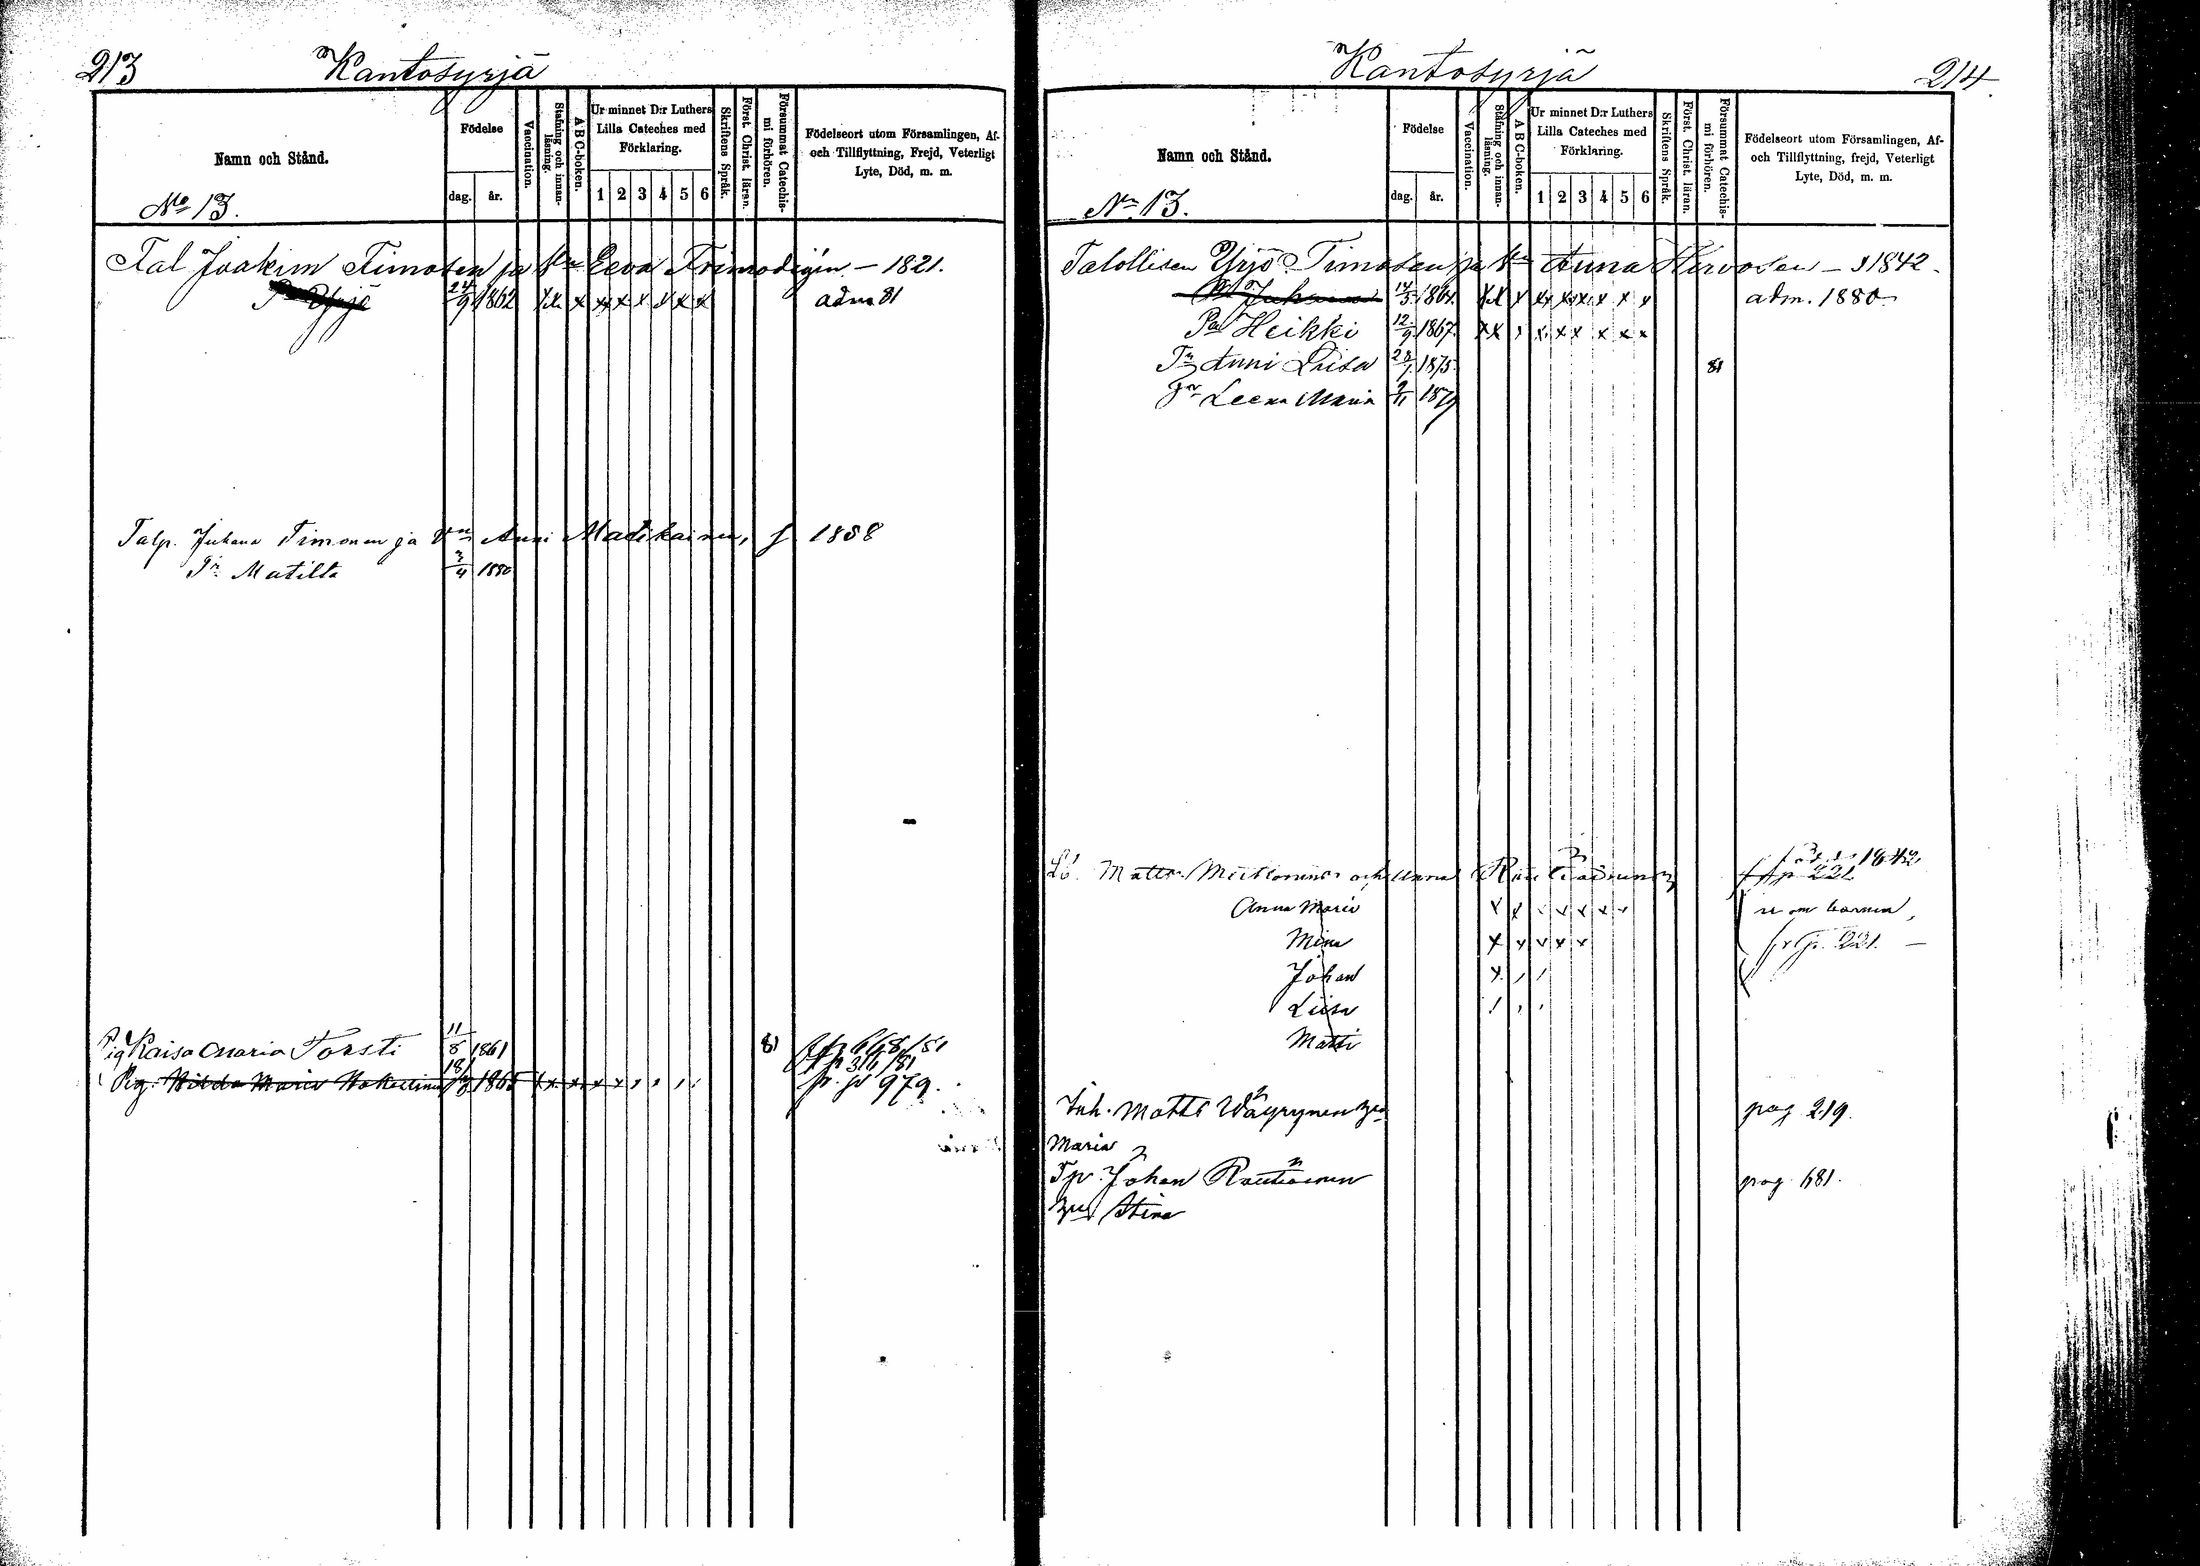 213 Kantosyrjä
Namn och Stånd.
No 13.
Födelse
dag. år.
Vaccination.
Stafning och innan-läsning.
A B C-boken.
Ur minnet D:r Luthers Lilla Cateches med Förklaring.
1 2 3 4 5 6
Skriftens Språk.
Först. Christ. läran.
Försummat Catechis-mi förhören.
Födelseort utom Församlingen, Af- och Tillflyttning, Frejd, Veterligt Lyte, Död, m. m.
Tal Joakim Timosen ja Eeva - 1821.
Yrjö 24/9 1862 x x x x x x x x adm 81
Talp. Juhana Timonen ja Anni Matikainen, s 1858
Tr Matilta 3/4 1880
Pig Kaisa Maria Torsti 11/8 1861 81
Pig. Hilda Maria 18/ 1865 x x x x
fr. p 979.
Kantosyrjä 214
Namn och Stånd.
No 13.
Födelse
dag. år.
Vaccination.
Stafning och innan-läsning.
A B C-boken.
Ur minnet D:r Luthers Lilla Cateches med Förklaring.
1 2 3 4 5 6
Skriftens Språk.
Först. Christ. läran.
Försummat Catechis-mi förhören.
Födelseort utom Församlingen, Af- och Tillflyttning, frejd, Veterligt Lyte, Död, m. m.
Talollisen Yrjö Timosen ja Anna Hirvosen - s 1842.
Juhana 14/5 1864 x x x x x x x x x adm. 1880
Pa Heikki 12/9 1867 x x x x x x x x
Tr Anni Liisa 28/1 1875 81
Tr Leena Maria 2/11 1879
Matts och Anna 1842
p 221
Anna Maria x x x x x x x
Mina x x x x x
fr p. 221.
Johan x
Liisa
Matti
Inh. Matts Wäyrynen pag 219.
Maria
Tp. Johan Rautiainen pag 681.
Stina